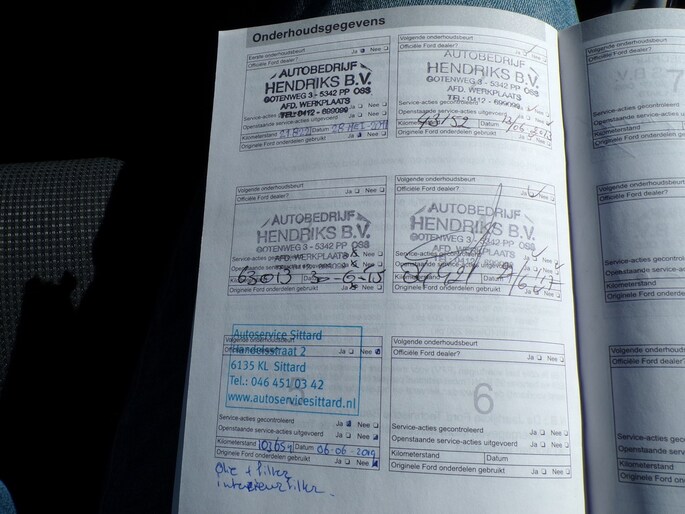 Onderhoudsgegevens
Eerste onderhoudsbeurt
Officiële Ford dealer? Ja Nee
AUTOBEDRIJF
HENDRIKS B.V.
GOTENWEG 3 - 5342 PP OSS
AFD. WERKPLAATS
TEL: 0412 - 699099
Service-acties gecontroleerd Ja Nee
Openstaande service-acties uitgevoerd Ja Nee
Kilometerstand Datum
Originele Ford onderdelen gebruikt Ja Nee
Volgende onderhoudsbeurt
Officiële Ford dealer? Ja Nee
AUTOBEDRIJF
HENDRIKS B.V.
GOTENWEG 3 - 5342 PP OSS
AFD. WERKPLAATS
TEL: 0412 - 699099
Service-acties gecontroleerd Ja Nee
Openstaande service-acties uitgevoerd Ja Nee
Kilometerstand 43152 Datum
Originele Ford onderdelen gebruikt Ja Nee
Volgende onderhoudsbeurt
Officiële Ford dealer? Ja Nee
AUTOBEDRIJF
HENDRIKS B.V.
GOTENWEG 3 - 5342 PP OSS
AFD. WERKPLAATS
TEL: 0412 - 699099
Service-acties gecontroleerd Ja Nee
Openstaande service-acties uitgevoerd Ja Nee
Originele Ford onderdelen gebruikt Ja Nee
Volgende onderhoudsbeurt
Officiële Ford dealer? Ja Nee
AUTOBEDRIJF
HENDRIKS B.V.
GOTENWEG 3 - 5342 PP OSS
AFD. WERKPLAATS
Service-acties gecontroleerd Ja Nee
Openstaande service-acties uitgevoerd Ja Nee
Originele Ford onderdelen gebruikt Ja Nee
Volgende onderhoudsbeurt
Ja Nee
Autoservice Sittard
Handelsstraat 2
6135 KL Sittard
Tel.: 046 451 03 42
www.autoservicesittard.nl
5
Service-acties gecontroleerd Ja Nee
Openstaande service-acties uitgevoerd Ja Nee
Kilometerstand Datum 06-06-2019
Originele Ford onderdelen gebruikt Ja Nee
Olie + filter
interieurfilter
Volgende onderhoudsbeurt
Officiële Ford dealer? Ja Nee
6
Service-acties gecontroleerd Ja Nee
Openstaande service-acties uitgevoerd Ja Nee
Kilometerstand Datum
Originele Ford onderdelen gebruikt Ja Nee
Volgende onderhoudsbeurt
Officiële Ford dealer?
7
Service-acties gecontroleerd
Openstaande service-acties
Kilometerstand
Originele Ford onderdelen
Volgende onderhoudsbeurt
Officiële Ford dealer?
Service-acties gecontroleerd
Openstaande service-acties
Kilometerstand
Originele Ford onderdelen
Volgende onderhoudsbeurt
Officiële Ford dealer?
Service-acties
Openstaande
Kilometerstand
Originele Ford